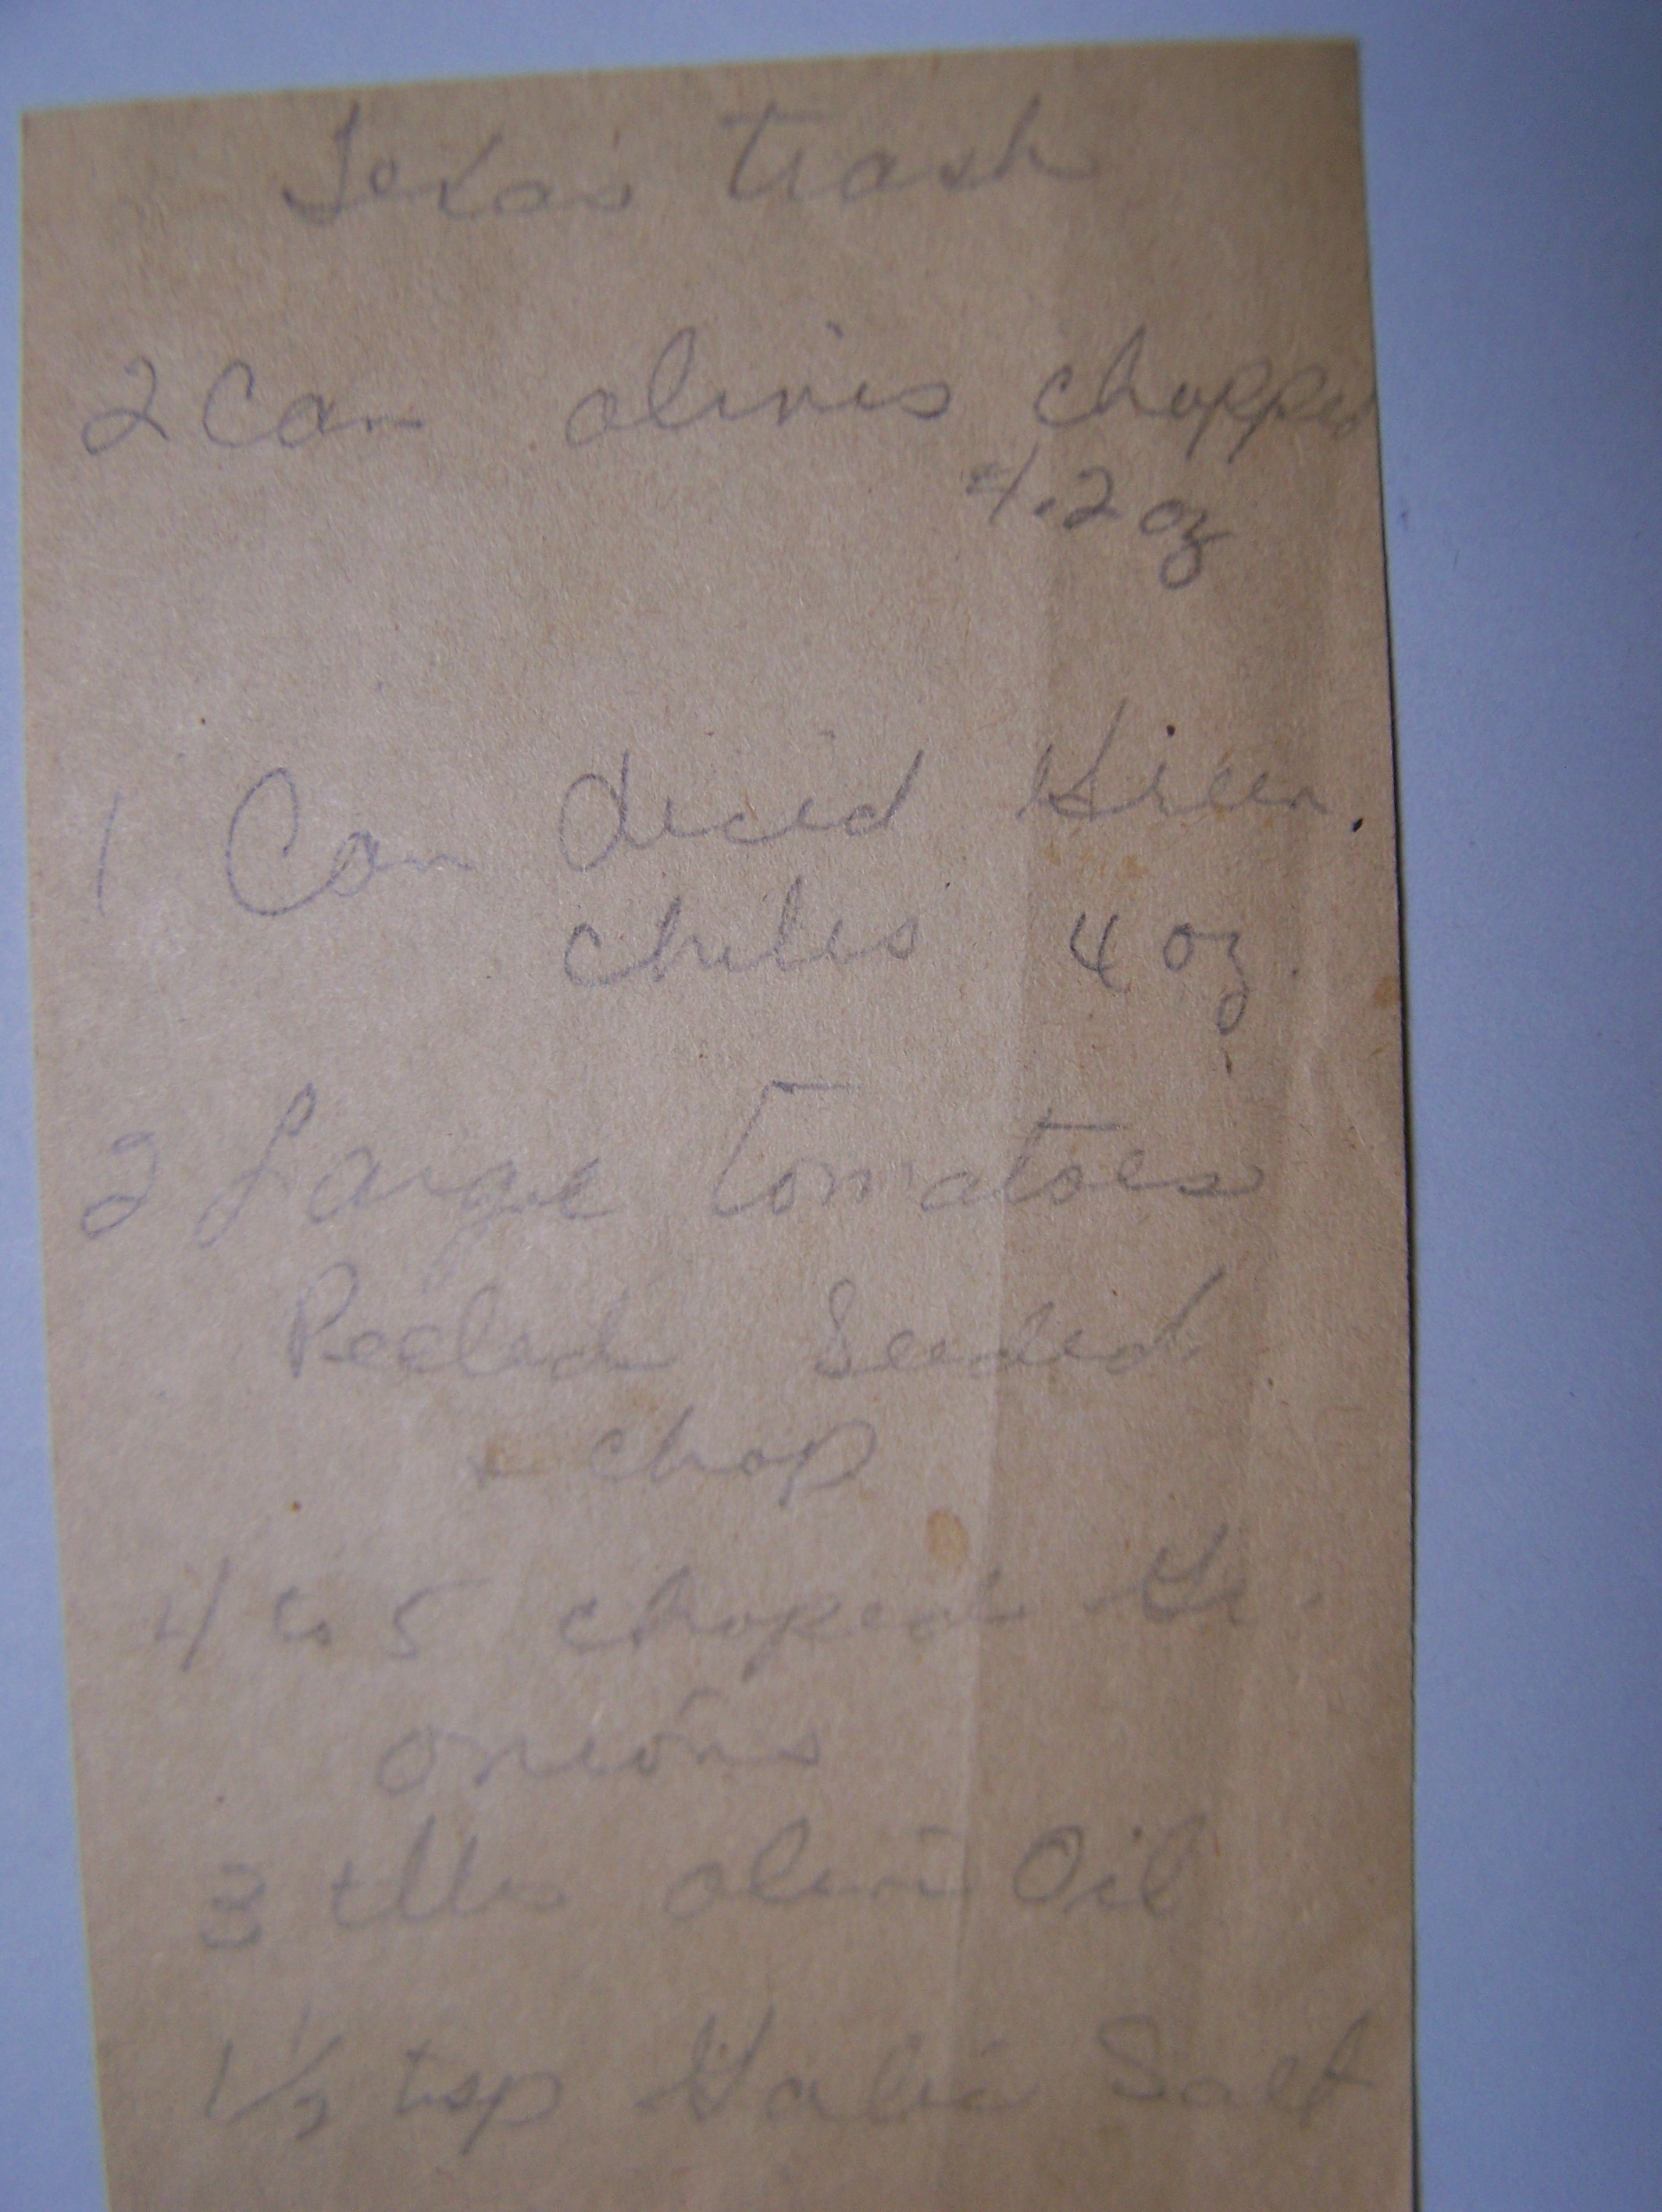 Texas trash
2 Can olives chopped
4.2 oz
1 Can diced Green
chiles 4 oz.
2 Large tomatoes
Peeled Seeded
+ chop
4 to 5 choped Gr.
onions
3 tbls olive Oil
1 1/2 tsp Galic Salt